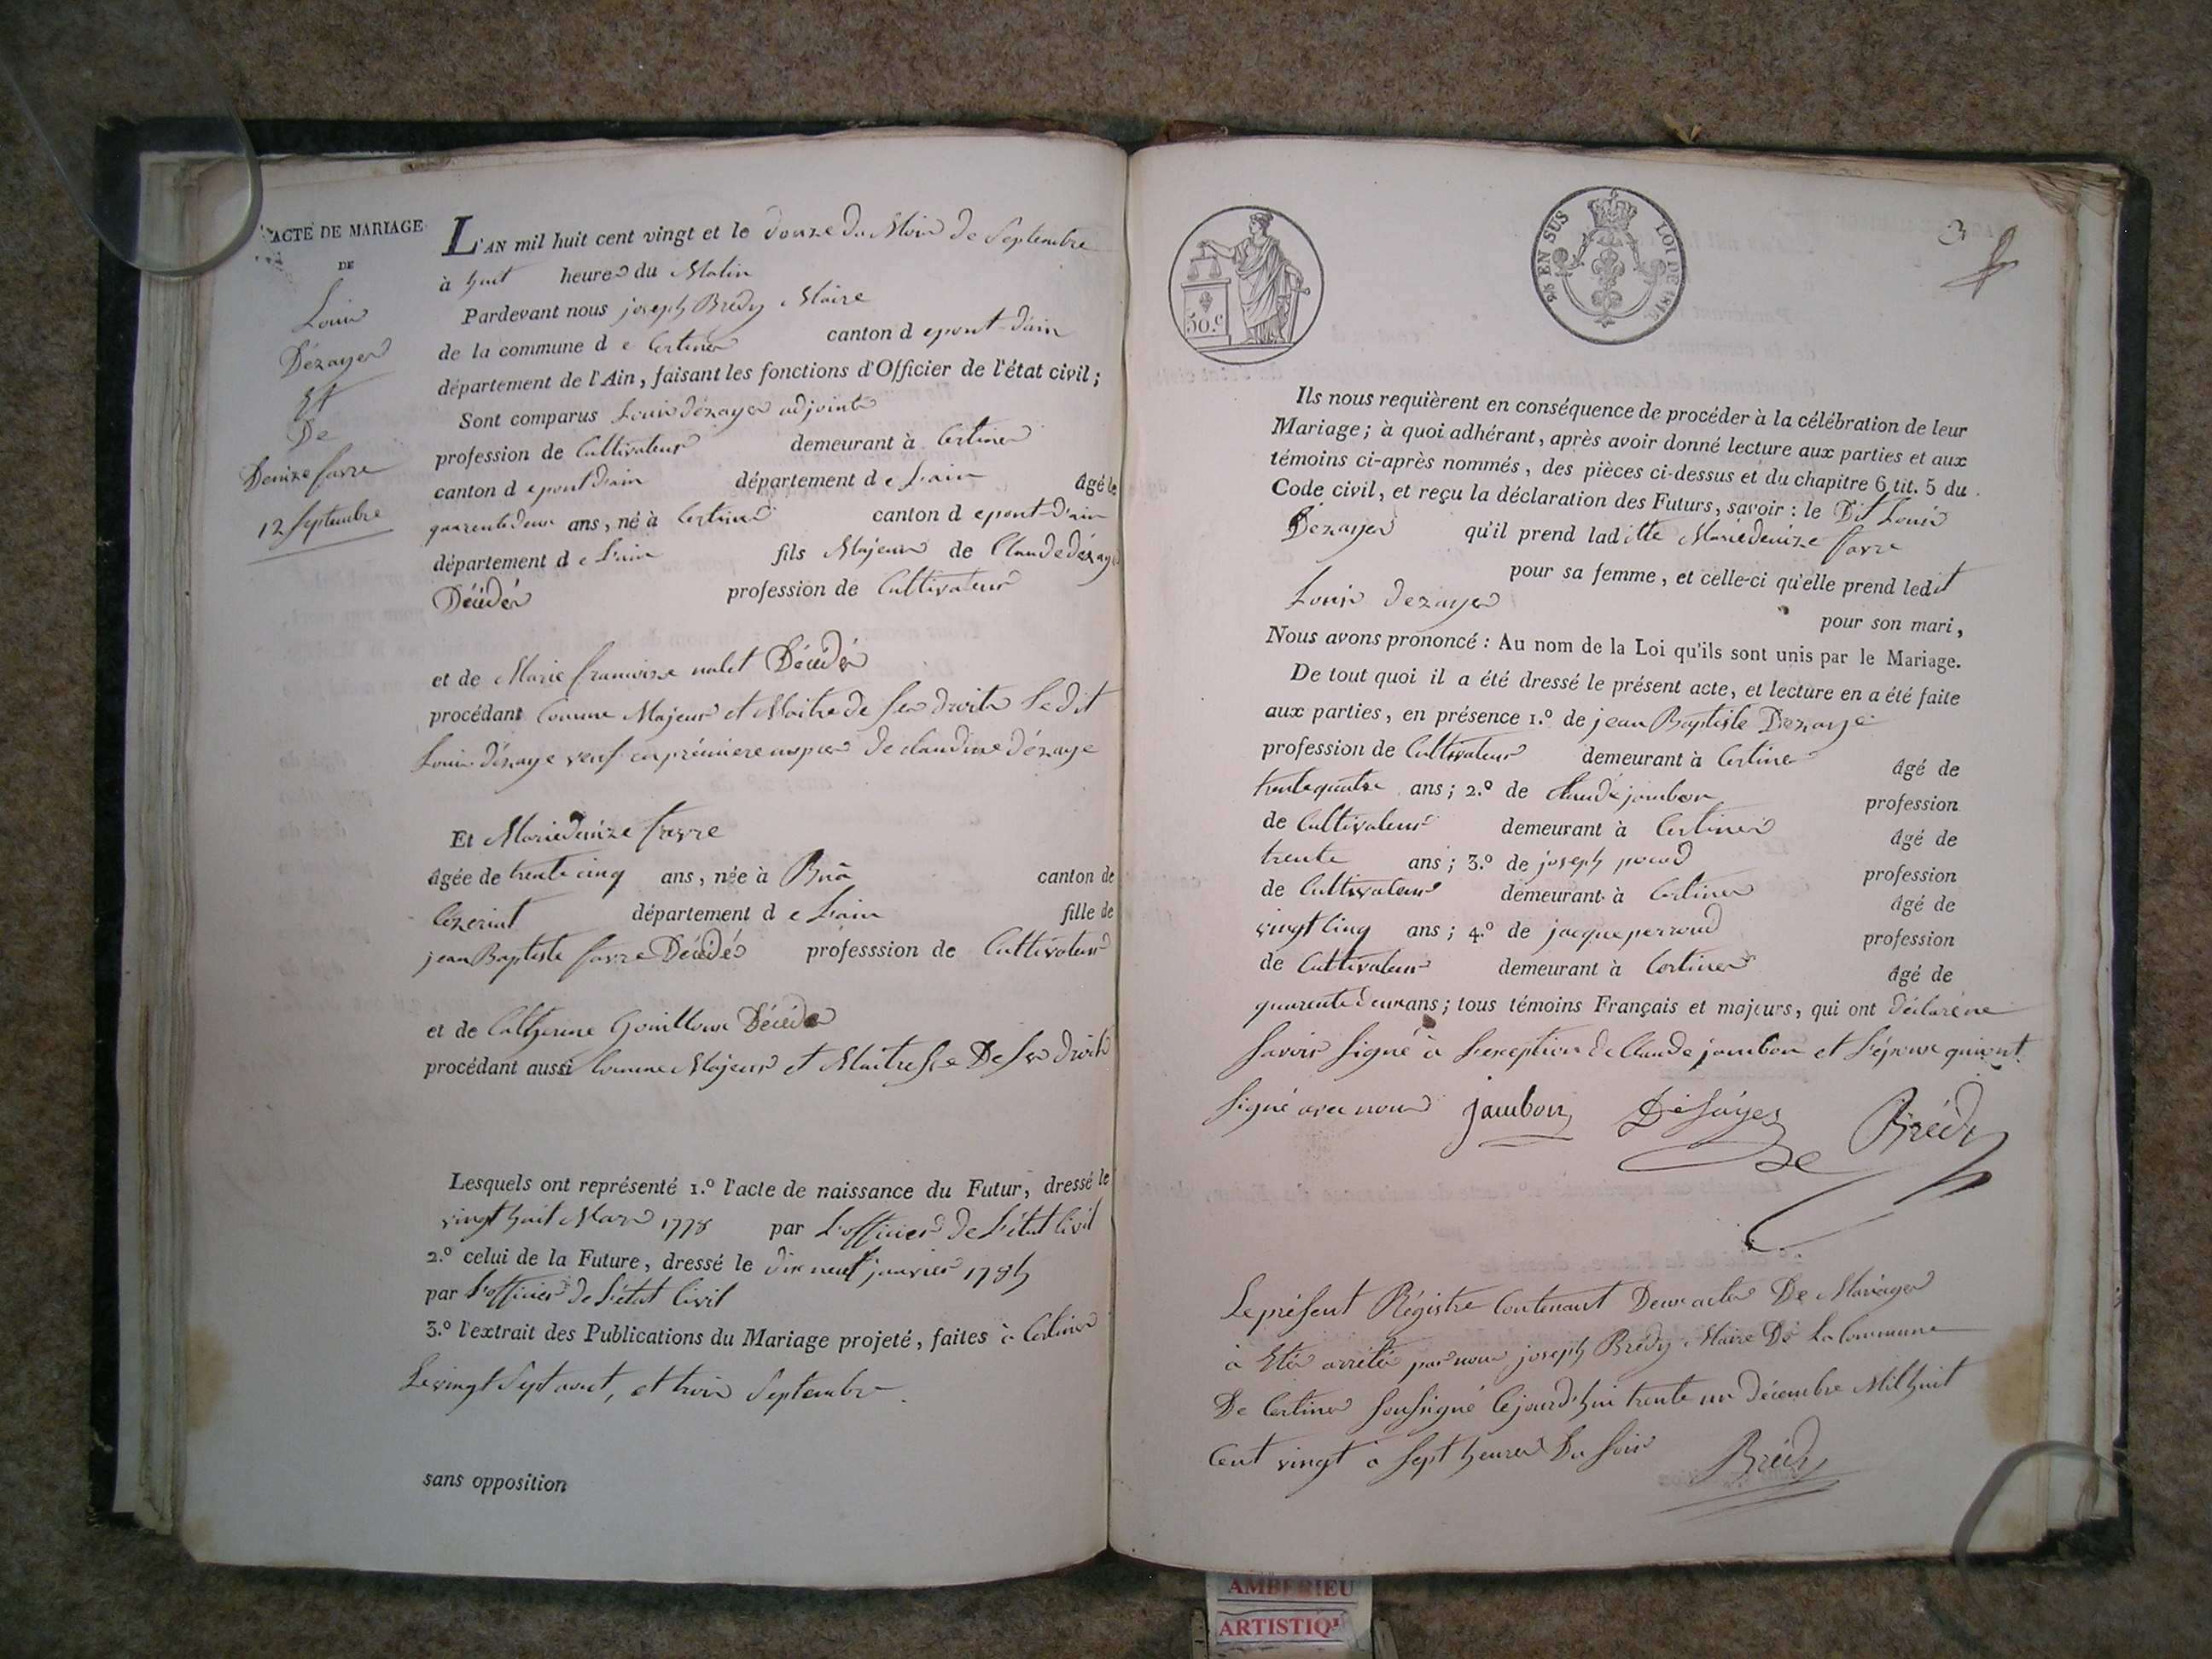 ACTE DE MARIAGE
DE
Louis
Dézayes
Et
De
Denize favre
12 Septembre
L'AN mil huit cent vingt et le Douze du Mois de Septembre
à huit heures du Matin
Pardevant nous joseph Brédy Maire
de la commune d e Certines canton d epont-d'ain
département de l'Ain, faisant les fonctions d'Officier de l'état civil;
Sont comparus Louis dézayes adjoint
profession de Cultivateur demeurant à Certines
canton d epont d'ain département d e L'ain âgé de
quarente deux ans, né à Certines canton d epont-d'ain
département d e L'ain fils Majeur de Claude dézaye
Décédé profession de Cultivateur
et de Marie francoise nalet Décédé
procédant Comme Majeur et Maitre de Ses droits Ledit
Louis dézaye veuf en prémiere nopces de claudine dézaye
Et Marie denize favre
âgée de trente cinq ans, née à canton de
Ceseriat département d e L'ain fille de
jean Baptiste favre Décédé professsion de Cultivateur
et de Catherine Gouilloux Décédé
procédant aussi Comme Majeur et Maitresse De Ses droits
Lesquels ont représenté 1.º l'acte de naissance du Futur, dressé le
vingt huit Mars 1778 par L'officier de L'état Civil
2.º celui de la Future, dressé le dix neuf janvier 1785
par L'officier de L'état Civil
3.º l'extrait des Publications du Mariage projeté, faites à Certines
Le vingt Sept aout, et trois Septembre.
sans opposition
50.c
25 EN SUS LOI DE 1816
3
Ils nous requièrent en conséquence de procéder à la célébration de leur
Mariage; à quoi adhérant, après avoir donné lecture aux parties et aux
témoins ci-après nommés, des pièces ci-dessus et du chapitre 6 tit. 5 du
Code civil, et reçu la déclaration des Futurs, savoir: le Dit Louis
Dézayes qu'il prend lad itte Marie denize favre
pour sa femme, et celle-ci qu'elle prend ledit
Louis dezayes
pour son mari,
Nous avons prononcé: Au nom de la Loi qu'ils sont unis par le Mariage.
De tout quoi il a été dressé le présent acte, et lecture en a été faite
aux parties, en présence 1.º de jean Baptiste Dezaye
profession de Cultivateur demeurant à Certines âgé de
trente quatre ans; 2.º de Claude jambon profession
de Cultivateur demeurant à Certines âgé de
trente ans; 3.º de joseph profession
de Cultivateur demeurant à Certines âgé de
vingt Cinq ans; 4.º de jacque perroud profession
de Cultivateur demeurant à Certines âgé de
quarente deux ans; tous témoins Français et majeurs, qui ont déclaré ne
Savoir Signé à L'exception de Claude jambon et L'époux qui ont
Signé avec nous jambon Desayes Brédy
Le présent Régistre Contenant Deux actes De Mariages
à Eté arrété par nous joseph Brédy Maire De La Commune
De Certines Soussigné Cejourd'hui trente un décembre Mil huit
Cent vingt à Sept heures Du Soir Brédy
AMBERIEU
ARTISTIQ